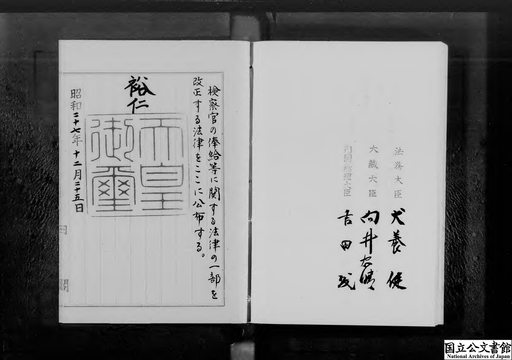 検察官の俸給等に関する法律の一部を
改正する法律をここに公布する。
裕仁
天皇
御璽
昭和二十七年十二月二十五日
内閣
法務大臣 犬養健
大蔵大臣 向井忠晴
内閣総理大臣 吉田茂
国立公文書館
National Archives of Japan